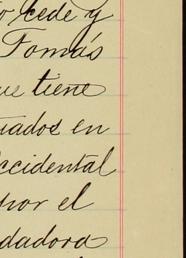 o cede y
Tomás
ue tiene
uados en
ccidental
por el
dadora